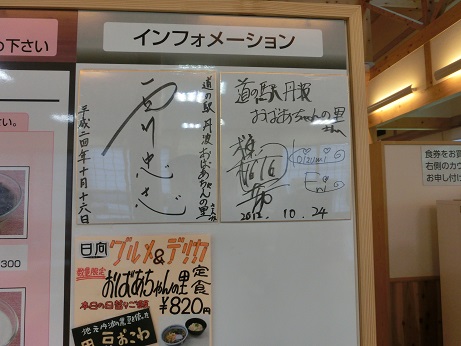 の下さい
インフォメーション
道の駅 丹波おばあちゃんの里
平成二四年十月十六日
道の駅丹波
おばあちゃんの里
さんへ
Koizumi
2012. 10. 24
300
グルメ&デリカ
数量限定
おばあちゃんの里定食
本日の日替りご飯
¥820円
豆おこわ
食券をお買
右側のカウ
お申し付け